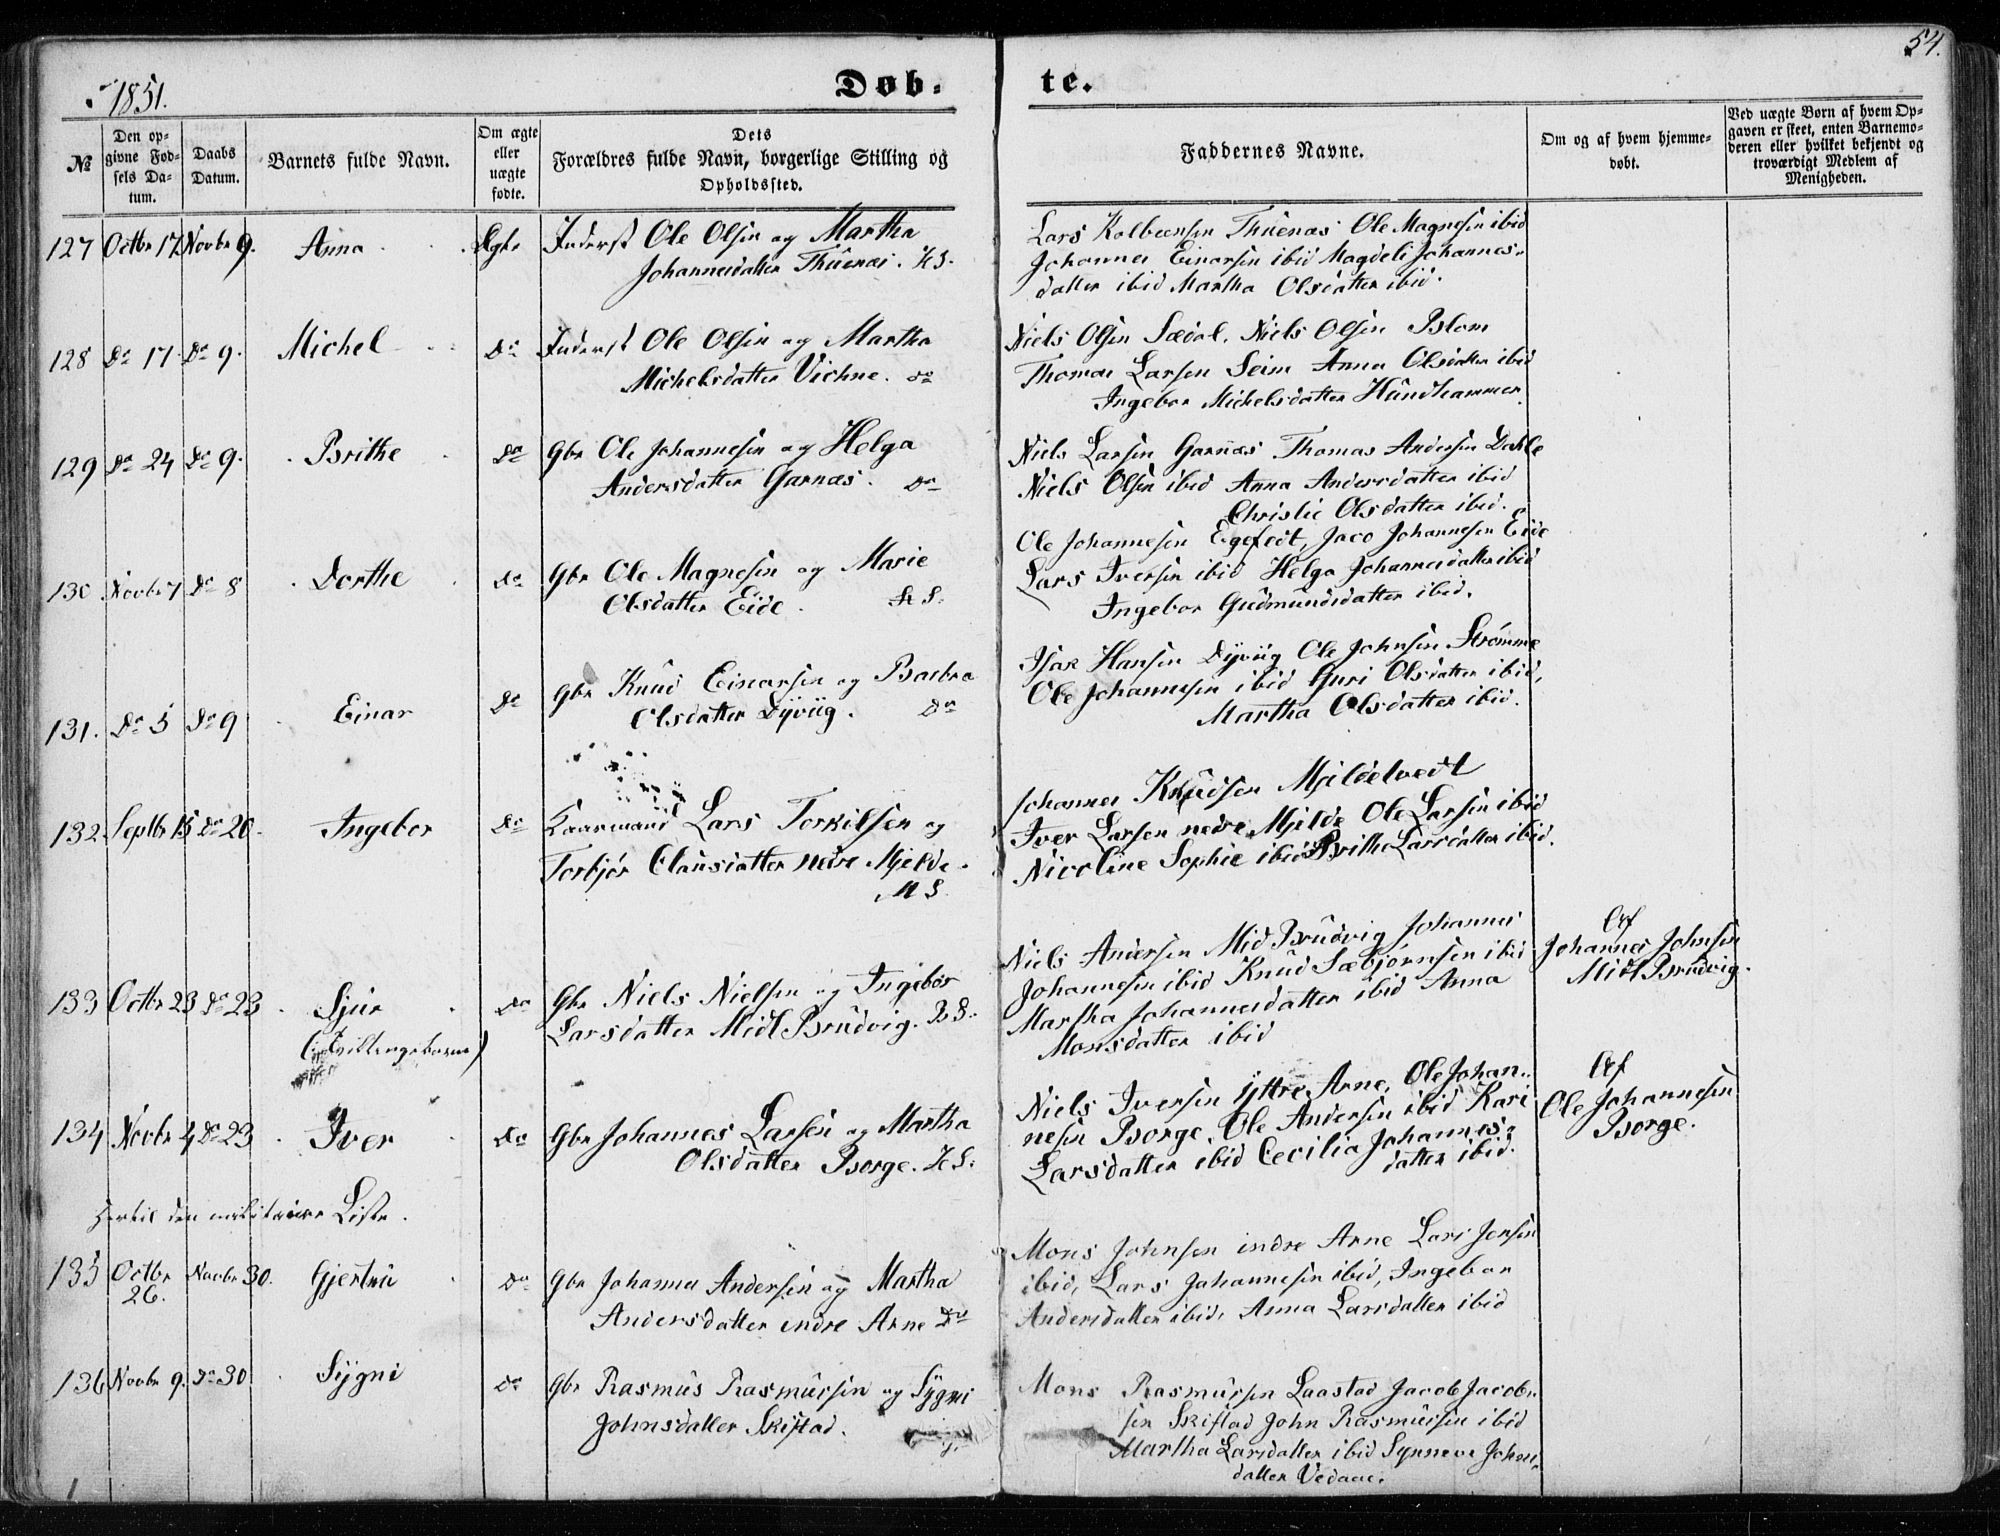 54.
1851.
Døb-
te.
№
Den op-
givne Fød-
sels Da-
tum.
Daabs
Datum.
Barnets fulde Navn.
Om ægte
eller
uægte
fødte.
Dets
Forældres fulde Navn, borgerlige Stilling og
Opholdssted.
Faddernes Navne.
Om og af hvem hjemme-
døbt.
Ved uægte Børn af hvem Op-
gaven er skeet, enten Barnemo-
deren eller hvilket bekjendt og
troværdigt Medlem af
Menigheden.
127 Octbr 17 Novbr 9. Anna Ægte Inderst Ole Olsen og Martha
Johannesdatter Thuenæs. H S.
Lars Kolbeensen Thuenæs Ole Magnesen ibid
Johannes Einarsen ibid Magdeli Johannes-
datter ibid Martha Olsdatter ibid.
128 Do 17 Do 9. Michel Do Inderst Ole Olsen og Martha
Michelsdatter Vichne. do
Niels Olsen Sædal, Niels Olsen Blom
Thomas Larsen Seim Anna Olsdatter ibid
Ingebor Michelsdatter Hundhammer
129 Do 24 Do 9. Brithe Do Gbr Ole Johannesen og Helga
Andersdatter Garnæs. Do
Niels Larsen Garnæs Thomas Andersen Dahle
Niels Olsen ibid Anna Andersdatter ibid
Christie Olsdatter ibid.
130 Novbr 7 Do 8 Dorthe Do Gbr Ole Magnesen og Marie
Olsdatter Eide. H S.
Ole Johannesen Egefedt, Jaco Johannesen Eide
Lars Iversen ibid Helga Johannesdatter ibid
Ingebor Gudmundsdatter ibid.
131. Do 5 Do 9 Einar Do Gbr Knud Einarsen og Barbra
Olsdatter Dyviig. Do
Isak Hansen Dyviig Ole Johnsen Strømme
Ole Johannesen ibid Guri Olsdatter ibid,
Martha Olsdatter ibid.
132 Septbr 15 Do 20. Ingebor Do Kaarmand Lars Torkilsen og
Torbjør Clausdatter nedre Mjelde.
M S.
Johannes Knudsen Mjeldetvedt
Iver Larsen nedre Mjelde Ole Larsen ibid
Nicoline Sophie ibid Brithe Larsdatter ibid.
133 Octbr 23 Do 23 Sjur Do Gbr Niels Nielsen og Ingebor
(Tvillingebarn)
Larsdatter Midt Brudvig. B S.
Niels Andersen Mid Brudvig Johannes
Johannesen ibid Knud Sæbjørnsen ibid
Martha Johannesdatter ibid Anna
Monsdatter ibid
Af
Johannes Johnsen
Midt Brudvig.
134 Novbr 4 Do 23 Iver Do Gbr Johannes Larsen og Martha
Olsdatter Borge. H S.
Niels Iversen yttre Arne, Ole Johan-
nesen Borge, Ole Andersen ibid Kari
Larsdatter ibid Cecilia Johannes-
datter ibid.
Af
Ole Johannesen
Borge.
Hertil den militaire Liste.
135 Octbr
26. Novbr 30. Gjertru Do Gbr Johannes Andersen og Martha
Andersdatter indre Arne Do
Mons Johnsen indre Arne Lars Jensen
ibid, Lars Johannesen ibid, Ingebor
Andersdatter ibid, Anna Larsdatter ibid
136 Novbr 9. Do 30 Sygni Do Gbr Rasmus Rasmussen og Sygni
Johnsdatter Skistad.
Mons Rasmussen Laastad Jacob Jacob-
sen Skistad John Rasmussen ibid
Martha Larsdatter ibid Synneve Johns-
datter Vedaae.